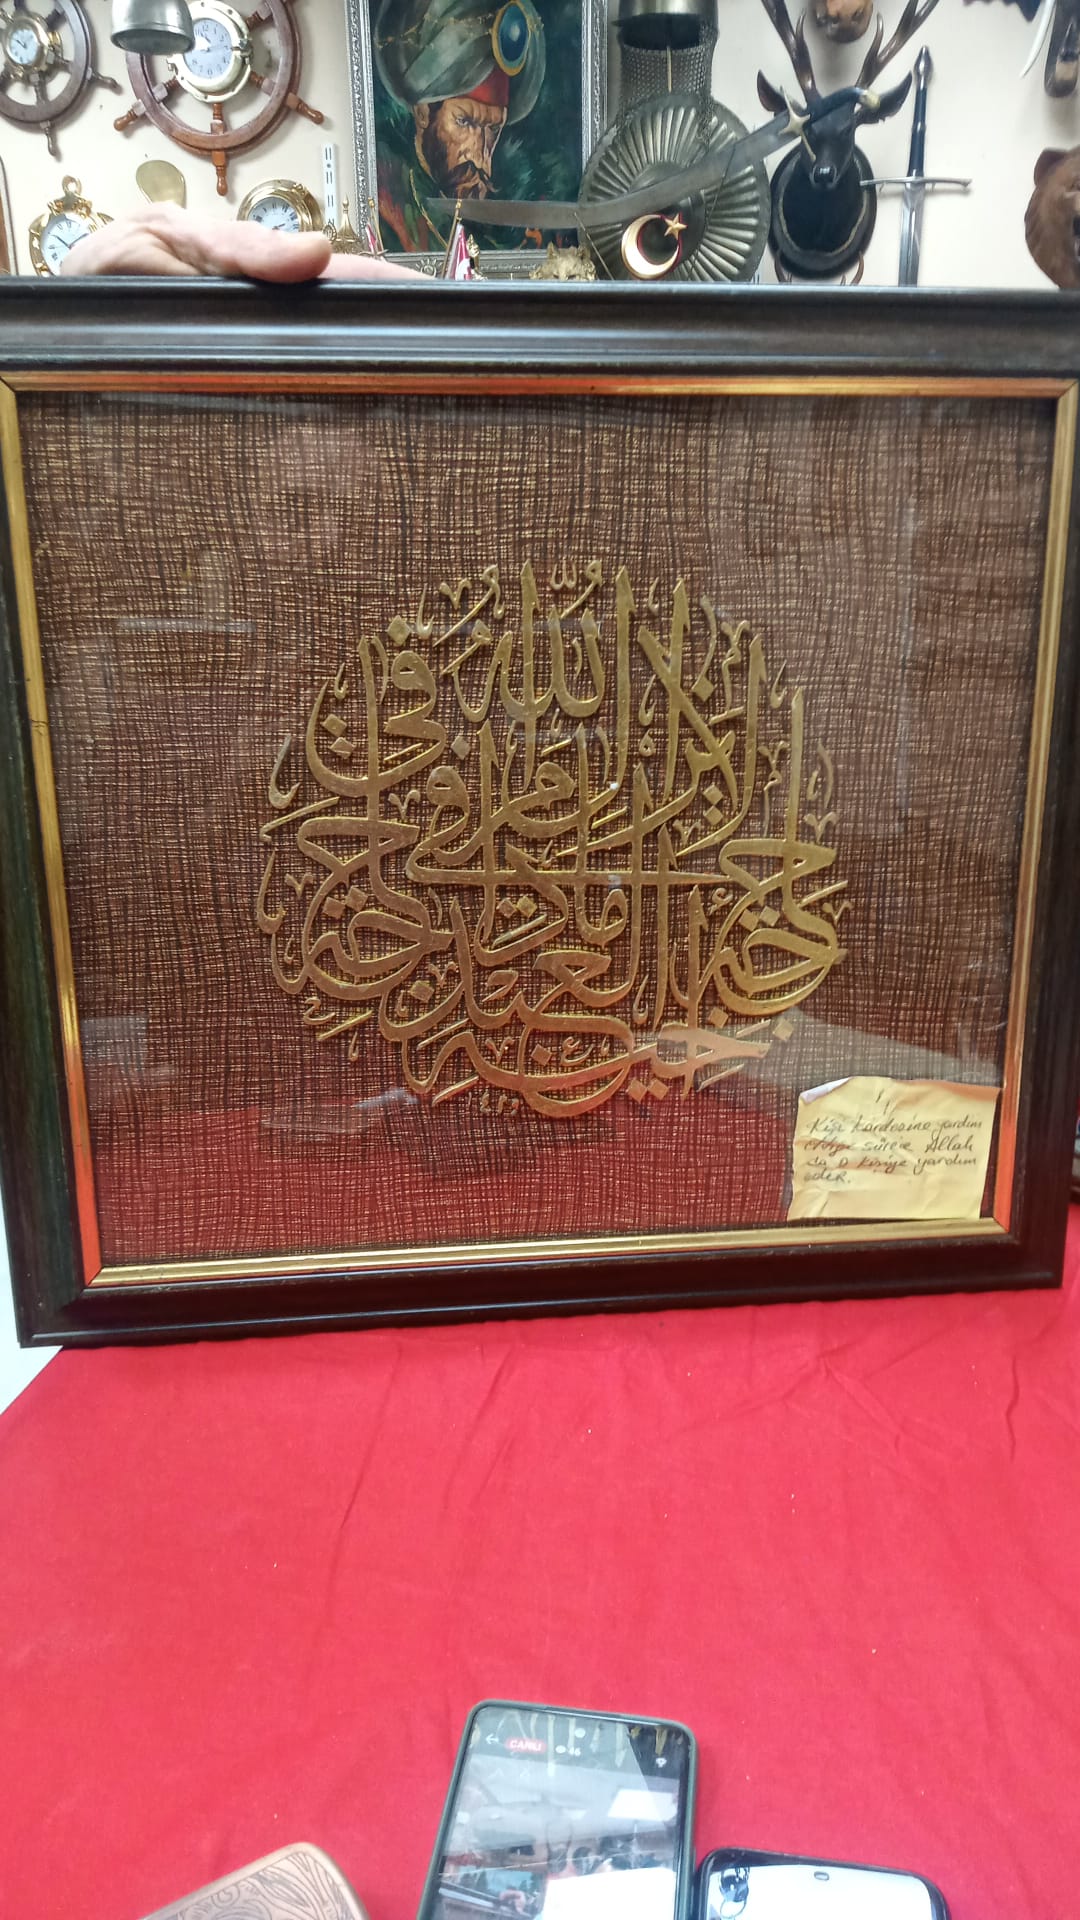 لا يزال الله في حاجة العبد ما دام في حاجة أخيه
Kişi kardeşine yardım
ettiği sürece Allah
da o kişiye yardım
eder.
CANLI